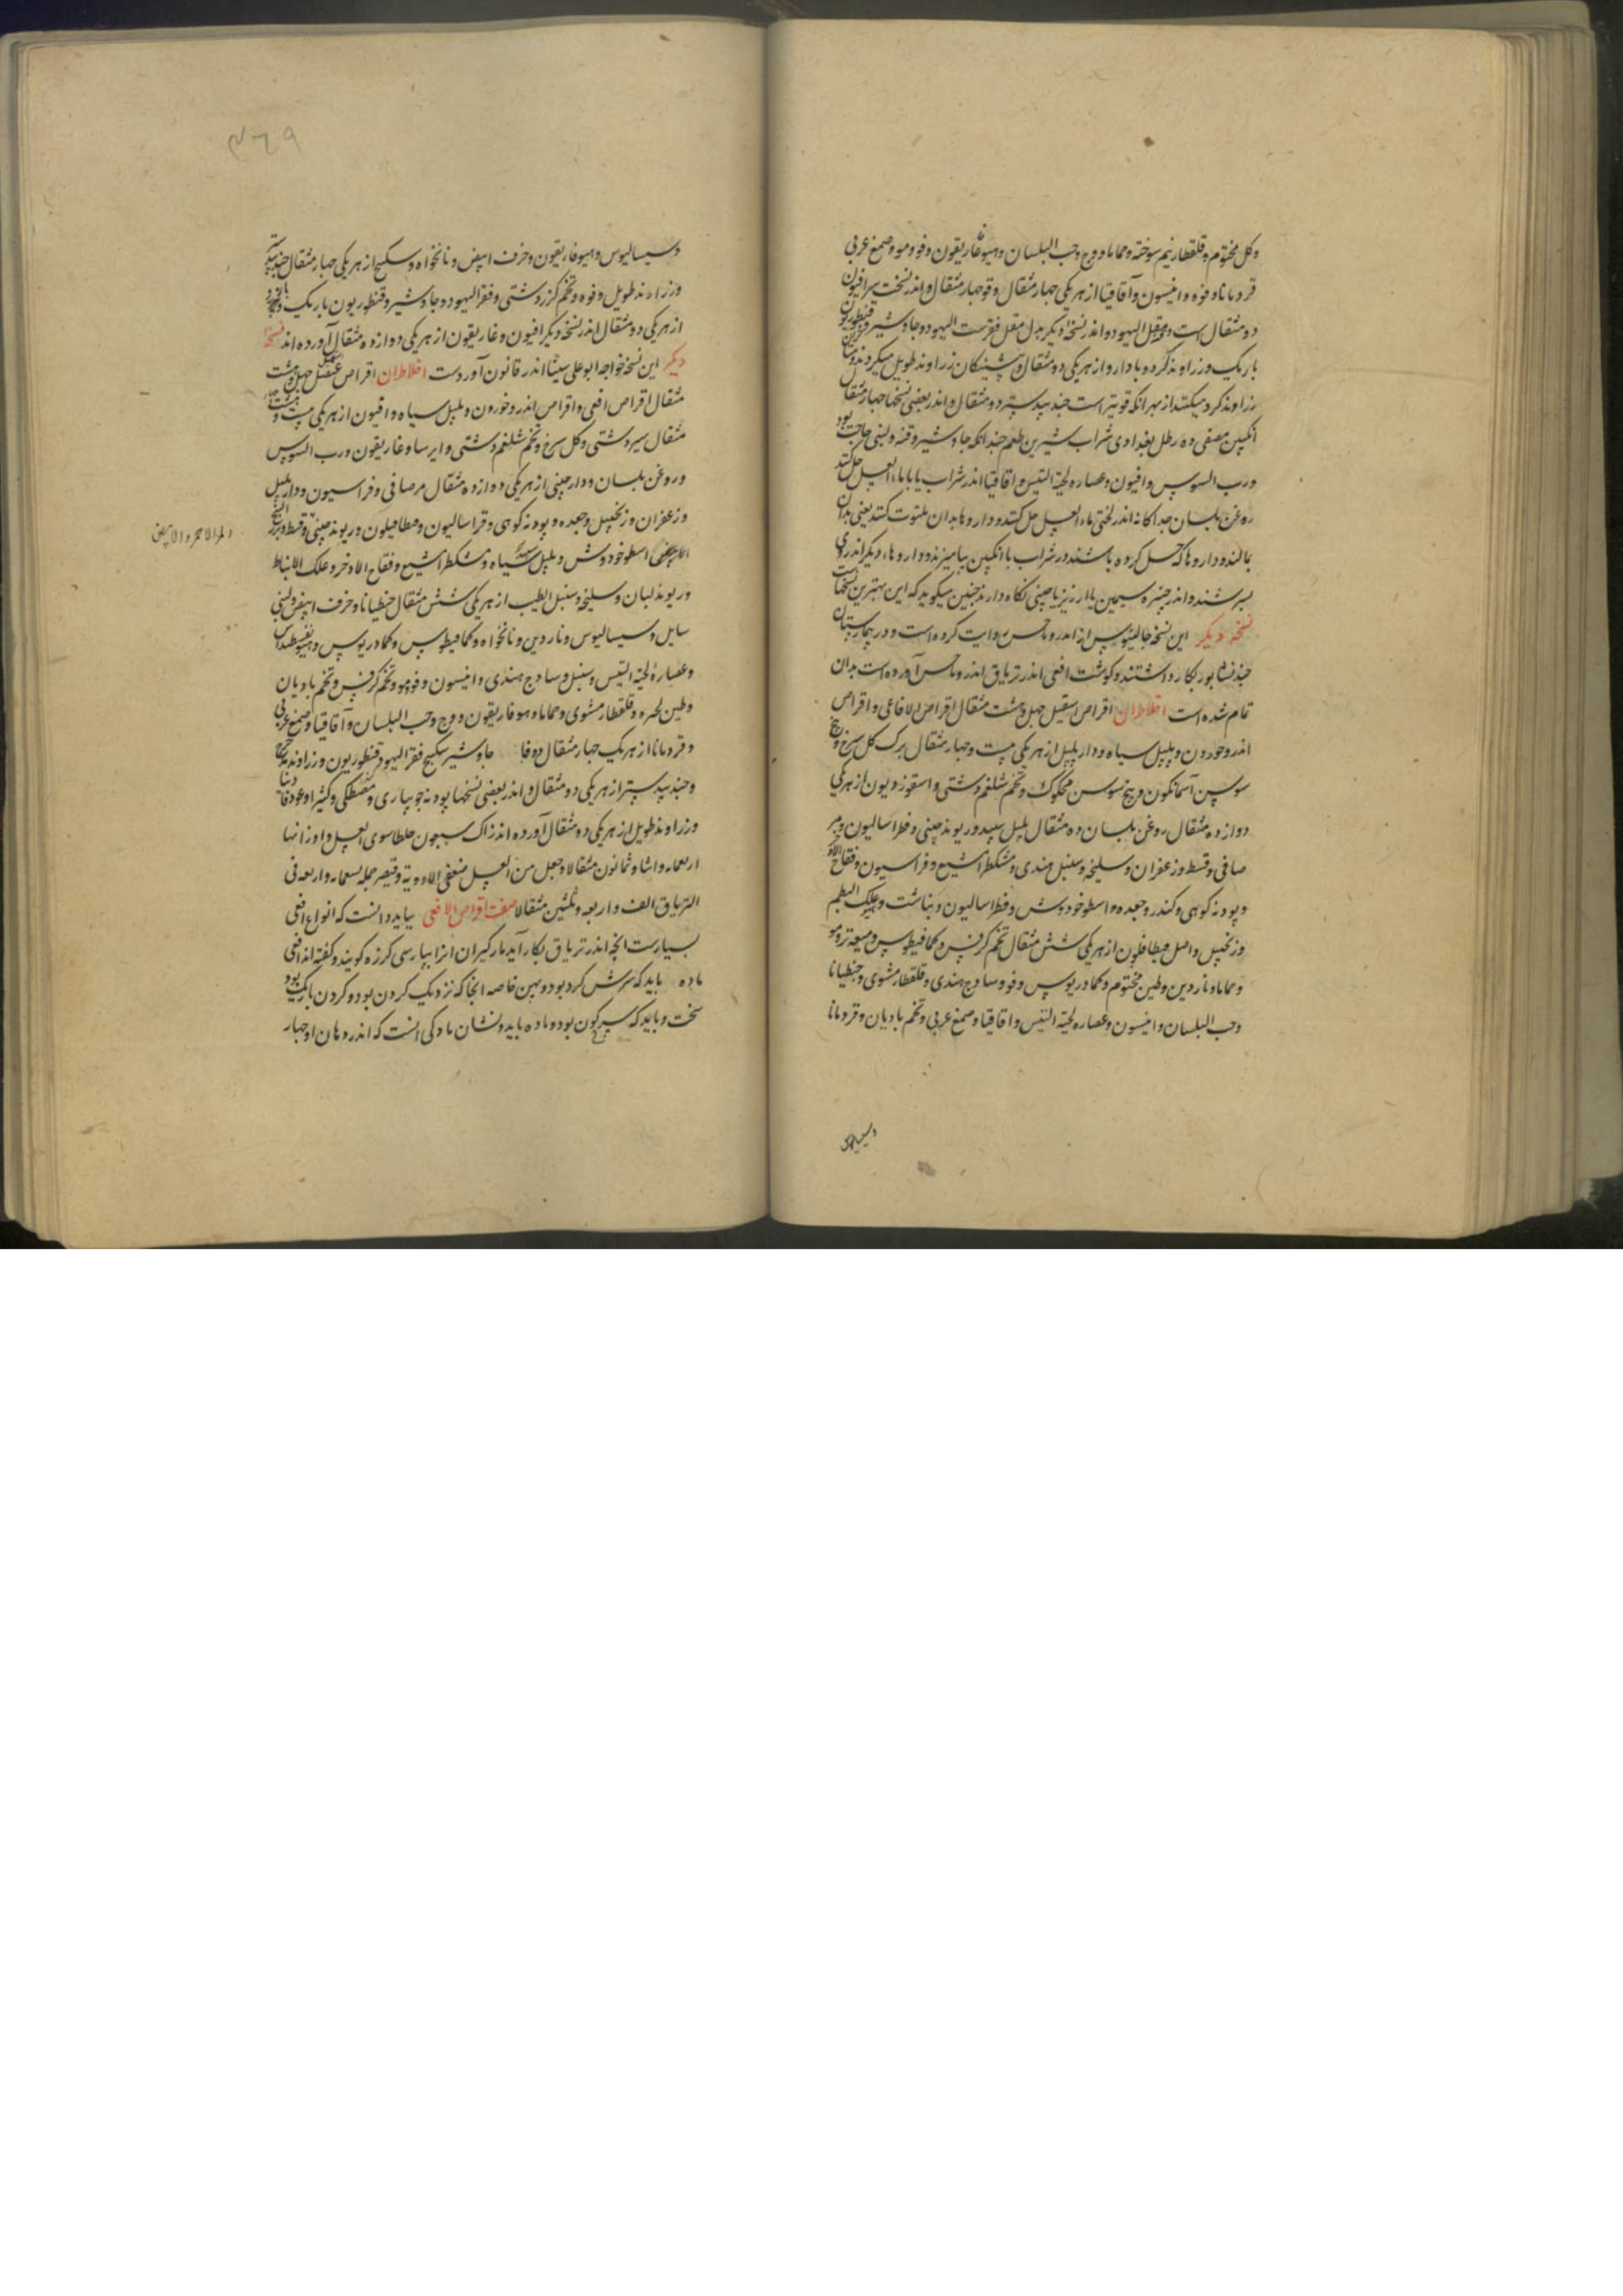 وکل مختوم و قلقطار نیم سوخته و حماما و وج وحب البلسان وهیوفاریقون وفو ومو وصمغ عربی
قردمانا وفوه وانیسون وآقاقیا از هر یکی چهار مثقال وقو چهار مثقال واندر نسخت سرافیون
دو مثقال است ومقل الیهود واندر نسخهٔ دیکر بدل مقل فقرست الیهود وجاوشیر وقنطوریون
باریک وزراوند کرد وبادارو از هر یکی دو مثقال وپیشینکان زراوند طویل میکردند
زراوند کرد میکنند از بهر انکه قویتر است جندبیدستر دو مثقال واندر بعضی نسخها چهار مثقال
انکبین مصفی ده رطل بغدادی شراب شیرین طعم چندانکه جاوشیر وقنه ولبنی حاجت بود
ورب السوس وافیون وعصاره لحیة التیس واقاقیا اندر شراب یا بماء العسل حل کنند
روغن بلسان جداکانه اندر لختی ماء العسل حل کنند ودارو ها بدان ملتوت کنند یعنی بدان
بمالند ودارو ها که حل کرده باشند در شراب با انکبین بیامیزند ودارو هاء دیکر اندروی
بسرشند واندر چیزه سیمین یا ارزیز یا چینی نکاه دارند چنین میکوید که این بهترین نسخهاست
نسخه دیکر این نسخه جالینوس از اندروماخس روایت کرده است ودر بیمارستان
جندشاپور بکار داشتند وکوشت افعی اندر تریاق اندروماخس آورده است بدان
تمام شده است اخلاط ان اقراص اسقیل چهل وهشت مثقال اقراص الافاعی واقراص
اندروخورون وپلپل سیاه ودار پلپل از هر یکی بیست وچهار مثقال برک کل سرخ وبیخ
سوسن آسمانکون وبیخ سوسن محکوک وتخم شلغم دشتی واسقوردیون از هر یکی
دوازده مثقال روغن بلسان ده مثقال پلپل سپید وریوند چینی وفطراسالیون ومر
صافی وقسط وزعفران وسلیخه وسنبل هندی ومشکطرامشیع وفراسیون وفقاح الاذخر
وپودنه کوهی وکندر وجعده واسطوخودوس وفطراسالیون وعلک البطم
وزنجبیل واصل فیطافلون از هر یکی شش مثقال تخم کرفس وکمافیطوس ومیعه تر ومو
وحماما وناردین وطین مختوم وکمادریوس وفو وسادج هندی وقلقطار مشوی وجنطیانا
وحب البلسان وانیسون وعصاره لحیة التیس واقاقیا وصمغ عربی وتخم بادیان وقردمانا
وسیسالیوس
۴۶۹
وسیسالیوس وهیوفاریقون وحرف ابیض ونانخواه وسکبینج از هر یکی چهار مثقال جندبیدستر
وزراوند طویل وفوه وتخم کزر دشتی وفقر الیهود وجاوشیر وقنطوریون باریک
از هر یکی دو مثقال اندر نسخه دیکر افیون وغاریقون از هر یکی دوازده مثقال آورده اند نسخهٔ
دیکر این نسخه خواجه ابو علی سینا اندر قانون آوردست اخلاط ان اقراص عنصل چهل وهشت
مثقال اقراص افعی واقراص اندروخورون وپلپل سیاه وافیون از هر یکی بیست و
مثقال سیر دشتی وکل سرخ وتخم شلغم دشتی وایرسا وغاریقون ورب السوس
وروغن بلسان ودارچینی از هر یکی دوازده مثقال مر صافی وفراسیون ودار پلپل
وزعفران وزنجبیل وجعده وپودنه کوهی وفراسالیون وفطافیلون وریوند چینی وقسط
اسطوخودوس وپلپل سیاه ومشکطرامشیع وفقاح الاذخر وعلک الانباط
وریوند لبان وسلیخه وسنبل الطیب از هر یکی شش مثقال جنطیانا وحرف ابیض ولبنی
سایل وسیسالیوس وناردین ونانخواه وکمافیطوس وکمادریوس وهیوفسطیداس
وعصارهٔ لحیة التیس وسنبل وسادج هندی وانیسون وفو ومو وتخم کرفس وتخم بادیان
وطین وقلقطار مشوی وحماما وهوفاریقون ووج وحب البلسان وآقاقیا وصمغ عربی
وقردمانا از هر یک چهار مثقال دوقا جاوشیر سکبینج فقر الیهود قنطوریون وزراوند
وجندبیدستر از هر یکی دو مثقال واندر بعضی نسخها پودنه جویباری ومصطکی وکثیرا وعود
وزراوند طویل از هر یکی دو مثقال آورده اند زاک سیون خلطا سوی العسل واوزانها
اربعمایه واثنا وثمانون مثقالا وجعل من العسل ضعفی الادویة وقیصر جمله تسعمایه واربعه فی
التریاق الف واربعه وثلثین مثقالا صفت اقراص الافعی بباید دانست که انواع افعی
بسیارست انچه اندر تریاق بکار آید مار کیران انرا بپارسی کرزه کویند وکفته اند افعی
ماده باید که سرش کرد بود وپهن خاصه انجا که نزدیک کردن بود وکردن باریک بود
سخت وباید که سیر کون بود وماده باید ونشان مادکی انست که اندر دهان او چهار